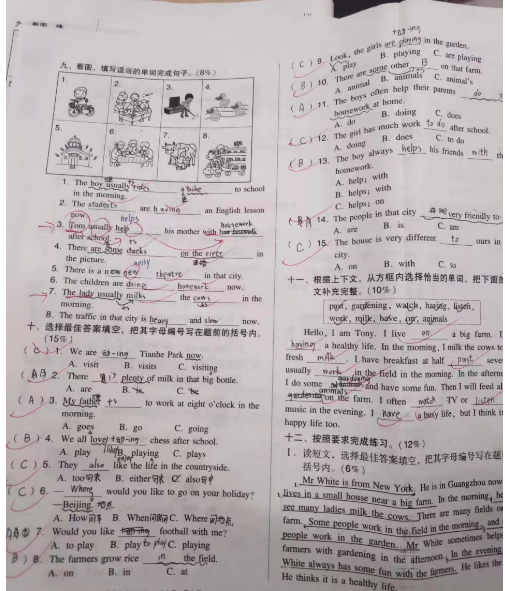 九、看图，填写适当的单词完成句子。(8%)
1. 2. 3. 4.
5. 6. 7. 8.
1. The boy usually rides a bike to school
in the morning.
2. The students are having an English lesson
now.
helps
3. Tom usually help his mother with housework
after school.
4. There are some ducks on the river in
the picture.
5. There is a new theatre in that city.
6. The children are doing homework now.
7. The lady usually milks the cows in the
morning.
8. The traffic in that city is heavy and slow now.
十、选择最佳答案填空，把其字母编号写在题前的括号内。
(15%)
1. We are 动-ing Tianhe Park now.
A. visit B. visits C. visiting
2. There plenty of milk in that big bottle.
A. are B. is C. be
( A ) 3. My father to work at eight o'clock in the
morning.
A. goes B. go C. going
( B ) 4. We all love chess after school.
A. play B. playing C. plays
( C ) 5. They also like the life in the countryside.
A. too句末 B. either句末 C. also句中
( C ) 6. — Where would you like to go on your holiday?
— Beijing. 地点
A. How B. When C. Where
7. Would you like football with me?
A. to play B. play C. playing
B ) 8. The farmers grow rice in the field.
A. on B. in C. at
( C ) 9. Look, the girls are playing in the garden.
A. play B. playing C. are playing
( B ) 10. There are some other B on that farm.
A. animal B. animals C. animal's
( A ) 11. The boys often help their parents do
housework at home.
A. do B. doing C. does
( C ) 12. The girl has much work to do after school.
A. doing B. does C. to do
( B ) 13. The boy always helps his friends with
homework.
A. help; with
B. helps; with
C. helps; on
14. The people in that city very friendly to
A. are B. is C. am
( C ) 15. The house is very different to ours in
city.
A. on B. with C. to
十一、根据上下文，从方框内选择恰当的单词，把下面
文补充完整。(10%)
past, gardening, watch, having, listen,
work, milk, have, on, animals
Hello, I am Tony. I live on a big farm. I
having a healthy life. In the morning, I milk the cows to
fresh milk. I have breakfast at half past
usually work in the field in the morning. In the
I do some gardening and have some fun. Then I will feed
animals on the farm. I often watch TV or listen
music in the evening. I have a busy life, but I think it
happy life too.
十二、按照要求完成练习。(12%)
I. 读短文，选择最佳答案填空，把其字母编号写在题
括号内。(6%)
Mr White is from New York. He is in Guangzhou now
lives in a small house near a big farm. In the morning,
see many ladies milk the cows. There are many fields
farm. Some people work in the field in the morning, and
people work in the garden. Mr White sometimes helps
farmers with gardening in the afternoon. In the evening
White always has some fun with the farmers. He likes the
He thinks it is a healthy life.